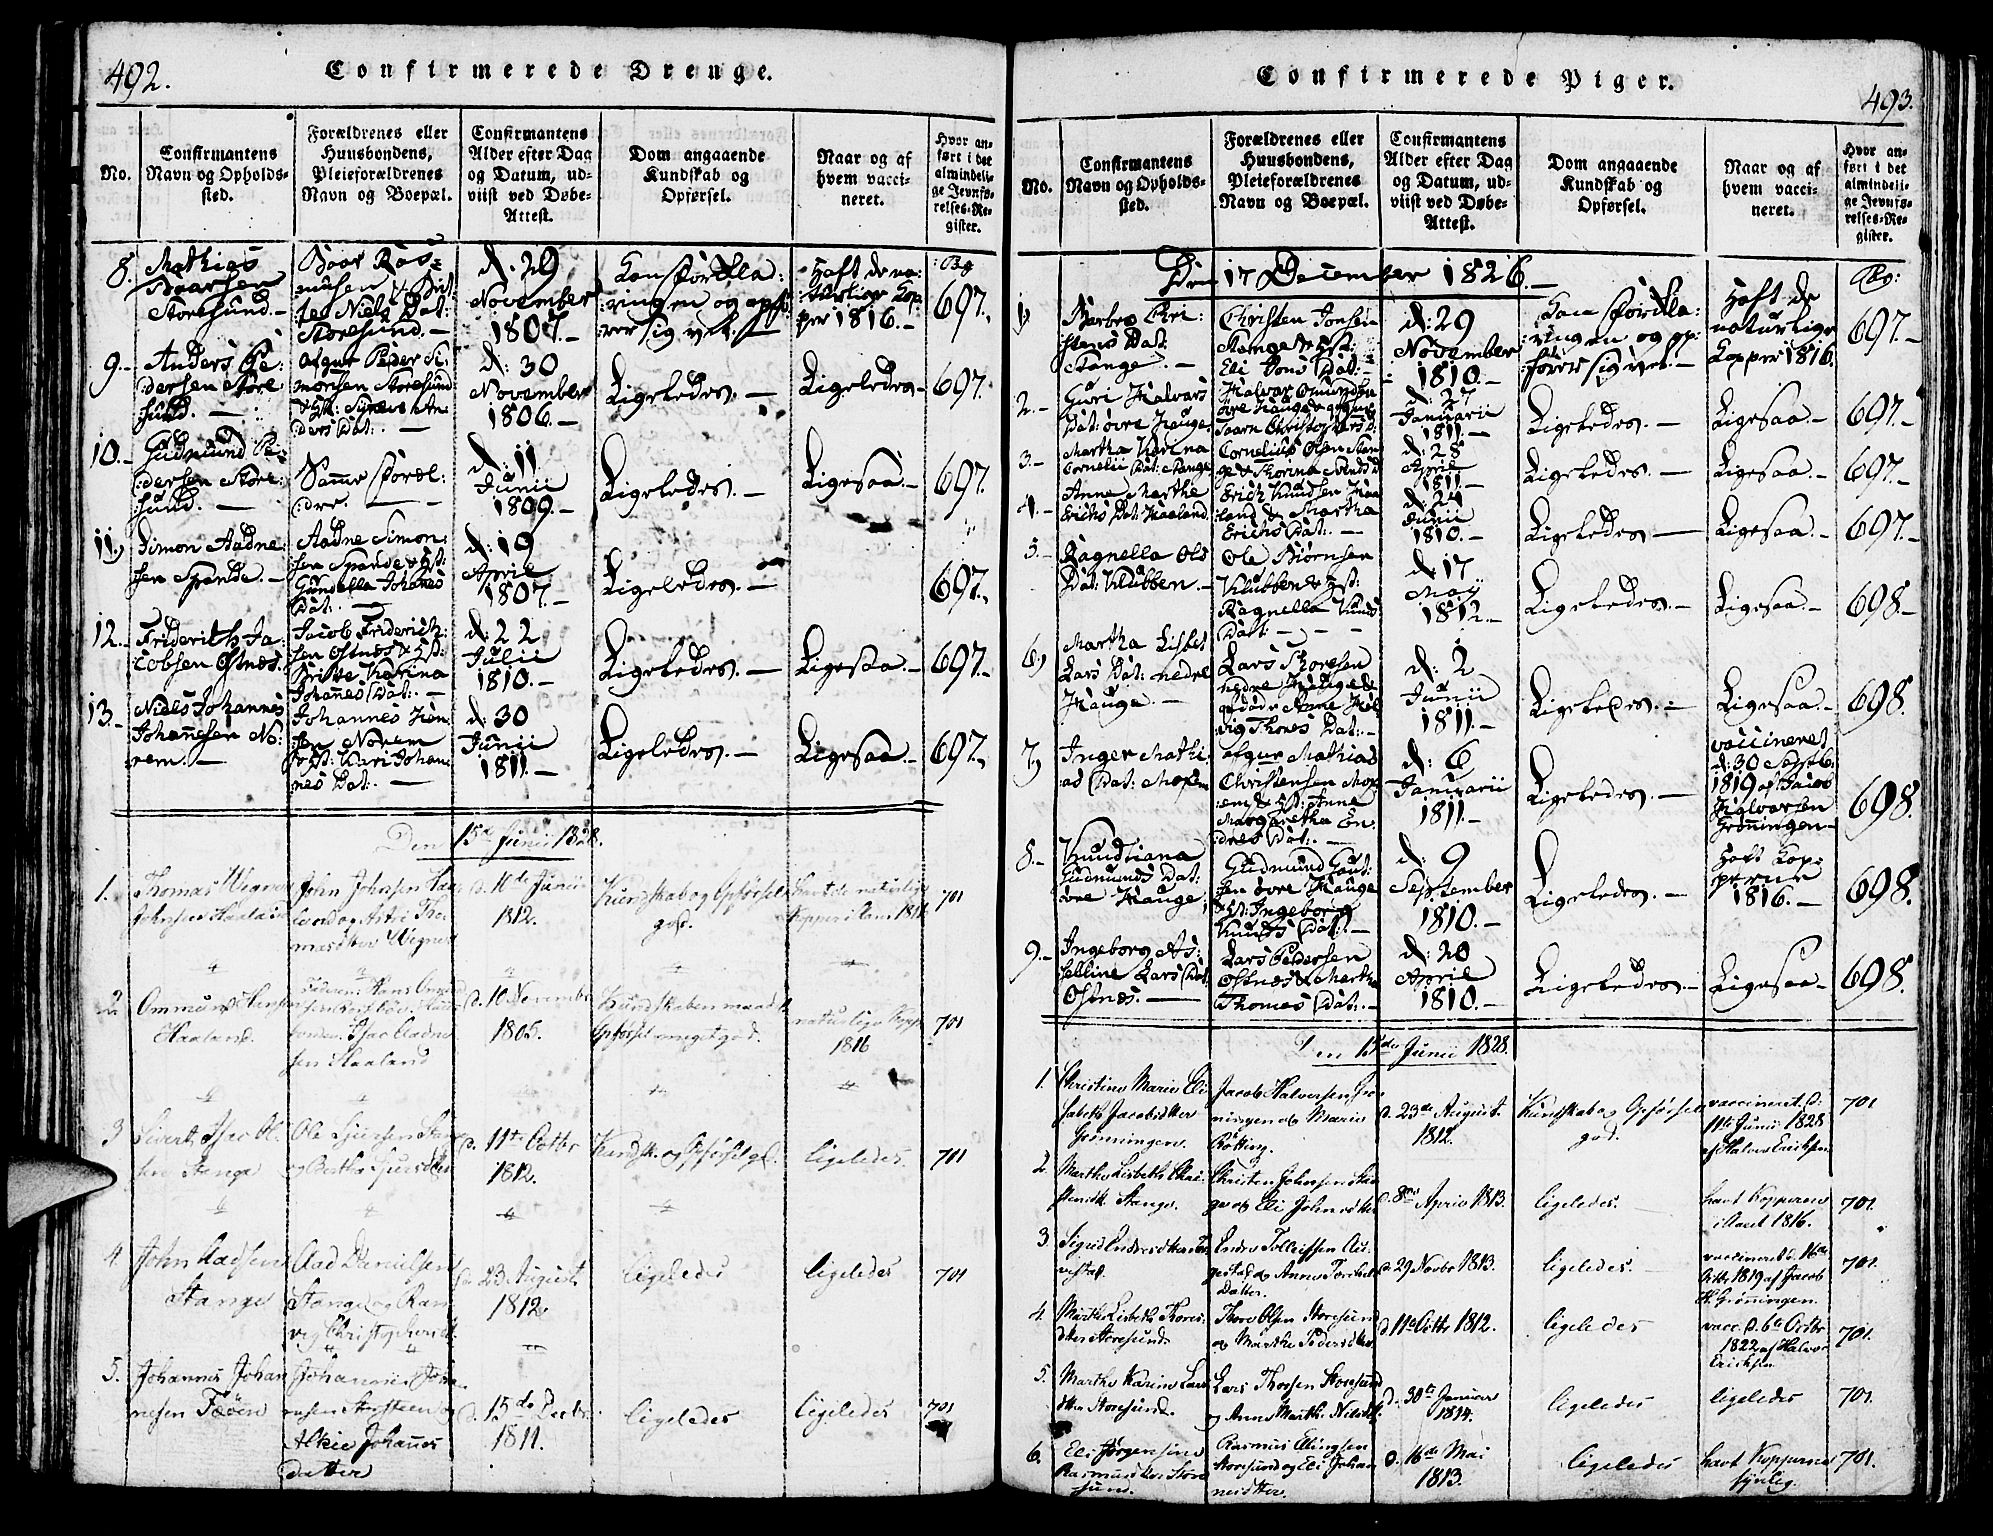 492.
Confirmerede Drenge.
No.
Confirmantens
Navn og Opholds-
sted.
Forældrenes eller
Huusbondens,
Pleieforældrenes
Navn og Boepæl.
Confirmantens
Alder efter Dag
og Datum, ud-
viist ved Døbe-
Attest.
Dom angaaende
Kundskab og
Opførsel.
Naar og af
hvem vacci-
neret.
Hvor an-
ført i det
almindeli-
ge Jevnfø-
relses-Re-
gister.
8.
Mathias
Baarsen
Storesund.
Baar Ras-
musen & Bir-
Niels Dat:
Storesund.
d: 29
November
1807.
ringen og opf:
rer sig vel.
Haft de na:
turlige Kop-
per 1816.
697.
9.
Anders Pe-
dersen Store
sund.
afgne Peder Si-
monsen Storesund
ders Dat:
d: 30
November
1806.
Ligeledes.
Ligeledes
697.
10.
Gudmund Pe-
dersen Store-
sund.
Samme Foræl-
dre.
d: 11
Junii
1809.
Ligeledes.
Ligesaa.
697.
11.
Simon Aadne-
sen Spande.
Aadne Simon-
sen Spande & Hst:
Gundella Johanes
Dat:
d: 19
April
1807.
Ligeledes.
697.
12.
Friderich Ja-
cobsen Østnes.
Jacob Friderich-
sen Østnes & Hst:
Britte Karina
Johanes Dat:
d: 22
Julii
1810.
Ligeledes.
Ligesaa.
697.
13.
Niels Johannes
Johanesen No-
rem.
Johannes
sen Norem
& Hst: Kari Johan-
nes Dat:
d: 30
Junii
1811.
Ligeledes.
Ligesaa.
697.
Den 15de Junii 1828.
1.
Thomas Wegner
Johnsen Haaland
John Johnsen Haa-
land og Astri Tho-
masdtter Wegner
d. 10de Junii
1812.
Kundskab og Opførsel
god.
havt de naturlige
701
2.
Ommund Hansen
Haaland.
sen Haaland
d. 10 Novembr
1805.
Kundskaben maadl.
Opførsel meget god.
naturlige Kopp.
1816
701
3
Sivert
sen Stange
d. 11te Octbr
1812.
Kundsk. og Opførsel gd.
ligeledes.
701
4.
John Aadsen
Stange
Aad Danielsen
Stange og Ran-
veg Christophersdt.
23. August
1812.
ligeledes
ligeledes
701
5.
Johannes Johan
nesen Føøen
Johannes Joha-
Alkie Johannes
datter
d. 15de Decbr.
1811.
ligeledes
ligeledes
701
Confirmerede Piger.
493.
No.
Confirmantens
Navn og Opholds-
sted.
Forældrenes eller
Huusbondens,
Pleieforældrenes
Navn og Boepæl.
Confirmantens
Alder efter Dag
og Datum, ud-
viist ved Døbe-
Attest.
Dom angaaende
Kundskab og
Opførsel.
Naar og af
hvem vacci-
neret.
Hvor an-
ført i det
almindeli-
ge Jevnfø-
relses-Re-
gister.
Den 17 December 1826.
1)
Barbro Chri-
stens Dat:
Stange.
Christen Jonsen
Stange & Hst:
Eli Jons Dat:
d: 29
November
1810.
Kan Forkla-
ringen og op-
fører sig vel.
Haft de
naturlige
Kopper 1816.
697.
2.
Guri Halvars
Dat: øvre Hauge.
Halvor Omunds
øvre Hauge
d: 27
Januarii
1811.
Ligeledes.
Ligesaa.
697.
3.
Martha Karina
Cornelii Dat: Stange
Cornelius Olsen Stan-
ge & Thorina Svends D
d: 28
April
1811.
Ligeledes.
Ligesaa.
697.
4.
Anne Marthe
Erichs Dat: Haaland.
Erich Knudsen Haa-
land & Martha
Erichs Dat:
d: 24
Junii
1810.
Ligeledes.
Ligesaa.
697.
5.
Ragnella Ols
Dat: Klubben.
Ole Biørnsen
Klubben & Hst:
Ragnella Knuds
Datt:
d: 17
May
1812.
Ligeledes.
Ligesaa.
698
6)
Martha Lisbet
Lars Dat: nedre
Hauge.
Lars Thoresen
nedre Hauge &
vig Thores Dat:
d: 2
Junii
1811.
Ligeledes.
Ligesaa.
698.
7)
Inger Mathi-
as Dat:
afgne Mathias
Christensen
& Hst: Anne
Margaretha En-
dres Dat:
d: 6
Januarii
1811.
Ligeledes.
vaccineret
d: 30 Septb:
1819 af Jacob
Halvorsen
Grønningen
698.
8.
Knudtiana
Gudmunds Dat:
øvre Hauge.
Gudmund
sen øvre Hauge
& Hst: Ingeborg
Knuds Dat:
d: 9
September
1810.
Ligeledes.
Haft Kop-
perne
1816.
698.
9.
Ingeborg As-
selline Lars Dat
Østnes.
Lars Pedersen
Østnes & Martha
Thomes Dat:
d: 20
April
1810.
Ligeledes.
Ligesaa.
698.
Den 15de Junii 1828.
1.
Christine Marie Eli
sabeth Jacobsdtter
Grønningen.
Jacob Halvorsen Grø-
ningen og Marie
Røtting.
d. 23de August.
1812.
Kundskab og Opførsel
god.
vaccineret d.
11te Junii 1828
af Halvor Eriksen
701
2.
Marthe Lisbeth Chri-
stensdtr Stange.
Christen Johnsen Stan
ge og Eli Johnsdtter
d. 8de April 1813.
ligeledes.
havt Kopperne
i Aaret 1816.
701.
3.
Sigrid Endresdtter
Endre Tolleifsen
Datter.
d. 29 Novbr 1813.
ligeledes.
vaccineret d. 16de
Octbr 1819 af Jacob
H. Grønningen.
701.
4.
Marthe Lisbeth Thores-
dtter Storesund.
Thore Olsen Storesund
og Marthe Pedersdtter
d. 11te Octbr 1812.
ligeledes
vacc. d. 6te Octbr
1822 af Halvor
Eriksen
701.
5.
Marthe Karine Lars
dtter Storesund.
Lars Thorsen Storesund
og Anne Marth. Nilsdtt.
d. 30te Januar
1814.
ligeledes
ligeledes
701.
6.
Eli Jørgensine
Rasmusdtter Store
sund.
Rasmus Ellingsen
Storesund og Eli Johan-
nesdtter.
d. 16de Mai
1813.
ligeledes
havt Kopperne
synlig.
701.